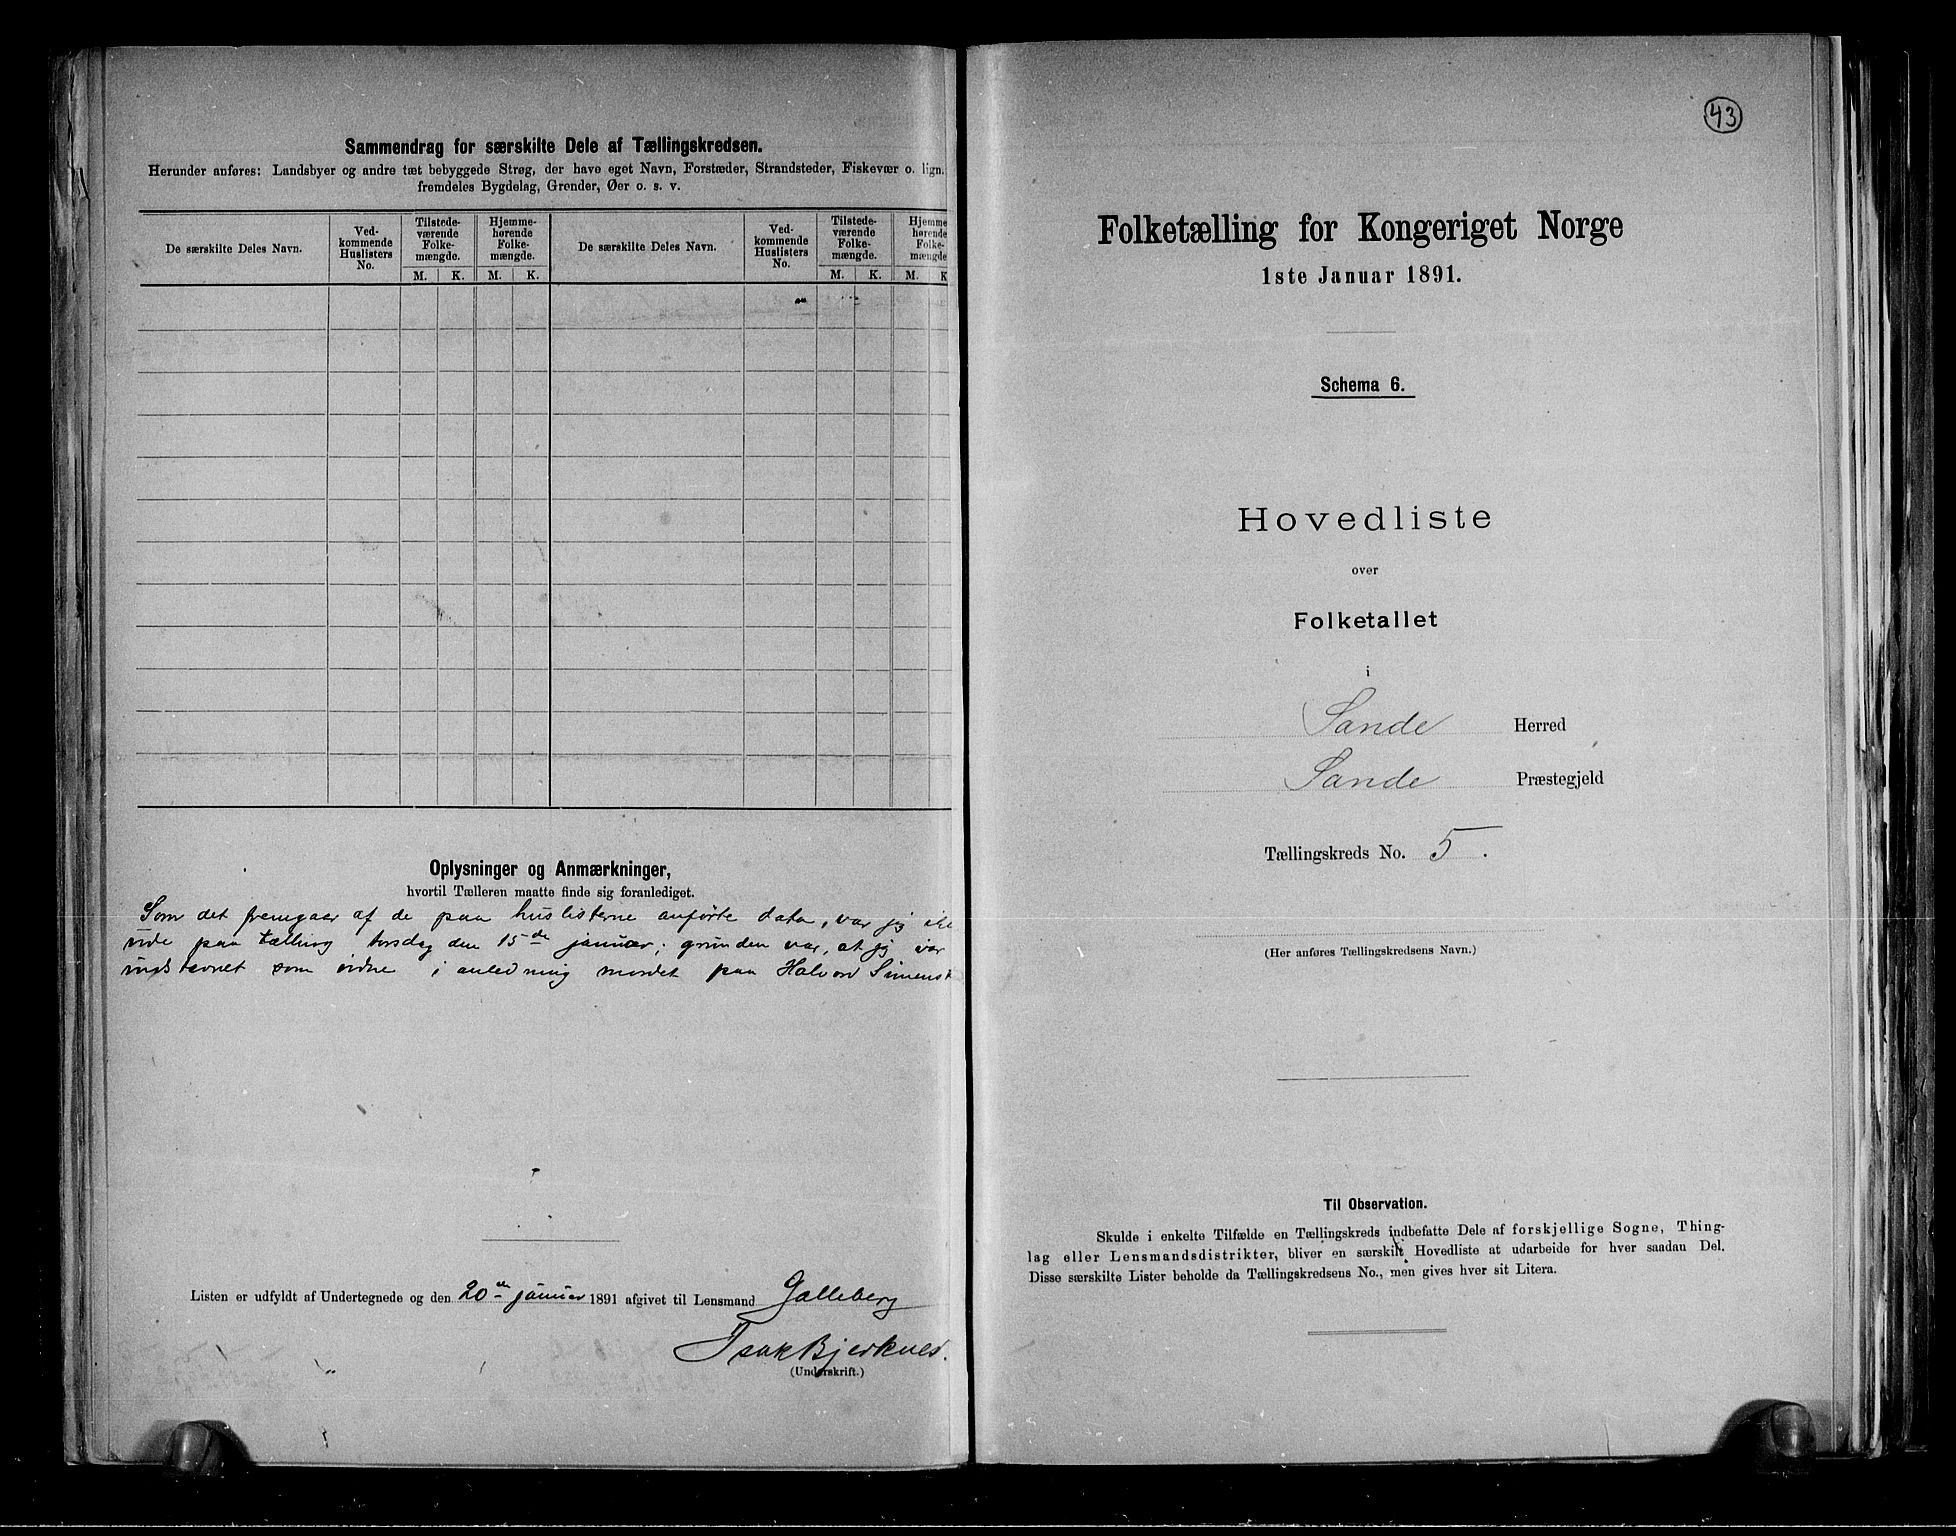 Sammendrag for særskilte Dele af Tællingskredsen.
Herunder anføres: Landsbyer og andre tæt bebyggede Strøg, der have eget Navn, Forstæder, Strandsteder, Fiskevær o. lign.
fremdeles Bygdelag, Grender, Øer o. s. v.
De særskilte Deles Navn.
Ved-
kommende
Huslisters
No.
Tilstede-
værende
Folke-
mængde.
M. K.
Hjemme-
hørende
Folke-
mængde.
M. K.
De særskilte Deles Navn.
Ved-
kommende
Huslisters
No.
Tilstede-
værende
Folke-
mængde.
M. K.
Hjemme
hørende
Folke-
mængde
M. K
Oplysninger og Anmærkninger,
hvortil Tælleren maatte finde sig foranlediget.
Som det fremgaar af de paa huslisterne anførte data, var jeg
ude paa tælling torsdag den 15de januar; grunden var, at jeg var
indstevnet som vidne i anledning mordet paa Halvor Simens
Listen er udfyldt af Undertegnede og den 20de januar 1891 afgivet til Lensmand Galleberg
Isak Bjerknes.
(Underskrift.)
43
Folketælling for Kongeriget Norge
1ste Januar 1891.
Schema 6.
Hovedliste
over
Folketallet
i
Sande Herred
Sande Præstegjeld
Tællingskreds No. 5.
(Her anføres Tællingskredsens Navn.)
Til Observation.
Skulde i enkelte Tilfælde en Tællingskreds indbefatte Dele af forskjellige Sogne, Thing-
lag eller Lensmandsdistrikter, bliver en særskilt Hovedliste at udarbeide for hver saadan Del.
Disse særskilte Lister beholde da Tællingskredsens No., men gives hver sit Litera.